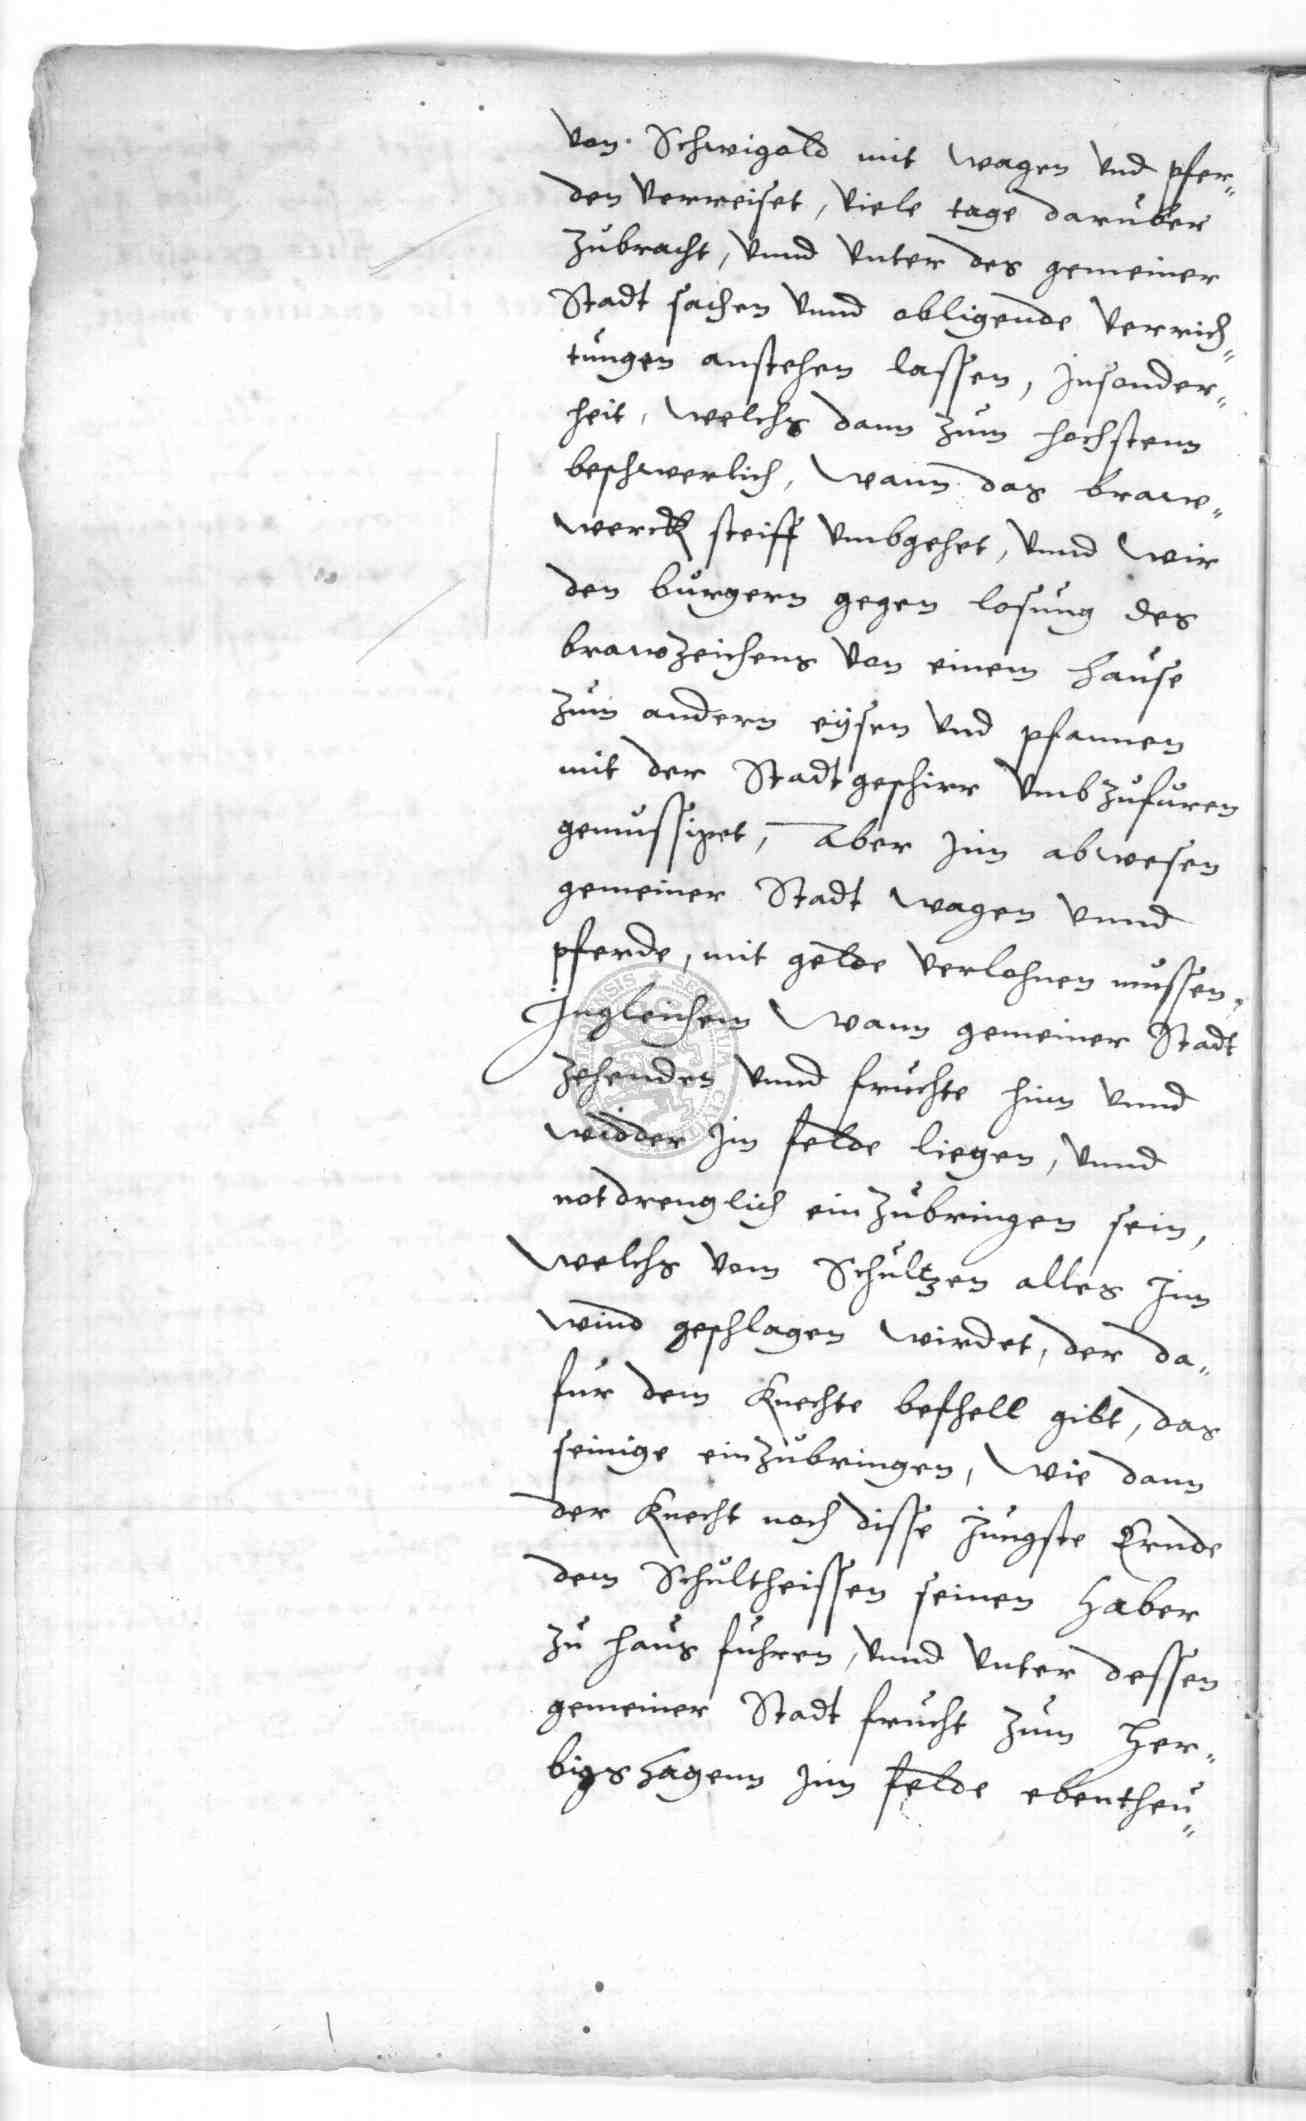 von Schweigold mit wagen vnd pfer„
den verreiset, viele tage darüber
zubracht, vnnd vnter des gemeiner
Stadt sachen vnnd obligende verrich„
tungen anstehen lassen, Jnsonder„
heit, welchs dann zum hochstenn
beschwerlich, wann das braw„
werck steiff vmbgehet, vnnd wir
den burgern gegen losung des
brawzeichens von einem hause
zum andern eysen vnd pfannen
mit der Stadt geschirr vmbzufuren
gemussiget, Aber jnn abwesen
gemeiner Stadt wagen vnnd
pferde, mit gelde verlohnen mussen.
Jngleichem wann gemeiner Stadt
zehenden vnnd fruchte hinn vnnd
widder jn felde liegen, vnnd
notdrenglich einzubringen sein,
welchs vom Schultzen alles jnn
wind geschlagen wirdet, der da„
fur dem Knechte befhell gibt, das
seinige einzubringen, wie dann
der Knecht noch disse jungste Ernde
dem Schultheissen seinen haber
zu haus fuhren, vnnd vnter dessen
gemeiner Stadt frucht zum Her„
bigshagenn jnn felde ebentheu„